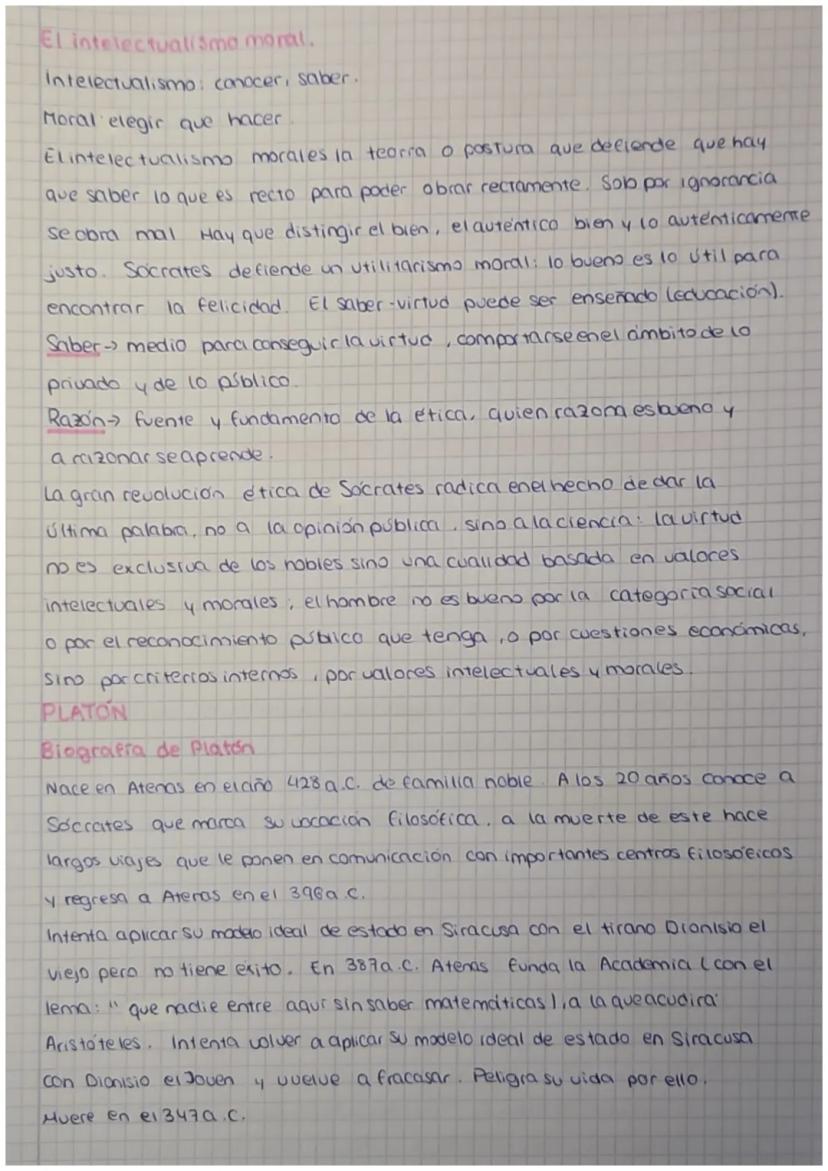 El intelectualismo moral.
Intelectualismo: conocer, saber.
Moral: elegir que hacer.
El intelectualismo moral es la teoría o postura que defiende que hay
que saber lo que es recto para poder obrar rectamente. Solo por ignorancia
se obra mal Hay que distingir el bien, el auténtico bien y lo auténticamente
justo. Sócrates defiende un utilitarismo moral: lo bueno es lo útil para
encontrar la felicidad. El saber-virtud puede ser enseñado (educación).
Saber→ medio para conseguir la virtud, comportarse en el ámbito de lo
privado y de lo público.
Razón→ fuente y fundamento de la ética, quien razona es bueno y
a razonar se aprende.
La gran revolución ética de Sócrates radica en el hecho de dar la
última palabra, no a la opinión pública, sino a la ciencia: la virtud
no es exclusiva de los nobles sino una cualidad basada en valores
intelectuales y morales; el hombre no es bueno por la categoría social
o por el reconocimiento público que tenga, o por cuestiones económicas,
sino por criterios internos, por valores intelectuales y morales.
PLATÓN
Biografía de Platón
Nace en Atenas en el año 428 a.C. de familia noble. A los 20 años conoce a
Sócrates que marca su vocación filosófica, a la muerte de este hace
largos viajes que le ponen en comunicación con importantes centros filosóficos
y regresa a Atenas en el 396 a.C.
Intenta aplicar su modelo ideal de estado en Siracusa con el tirano Dionisio el
viejo pero no tiene éxito. En 387 a.C. Atenas funda la Academia (con el
lema: " que nadie entre aquí sin saber matemáticas), a la que acudirá
Aristóteles. Intenta volver a aplicar su modelo ideal de estado en Siracusa
con Dionisio el Joven y vuelve a fracasar. Peligra su vida por ello.
Muere en el 347 a.C.